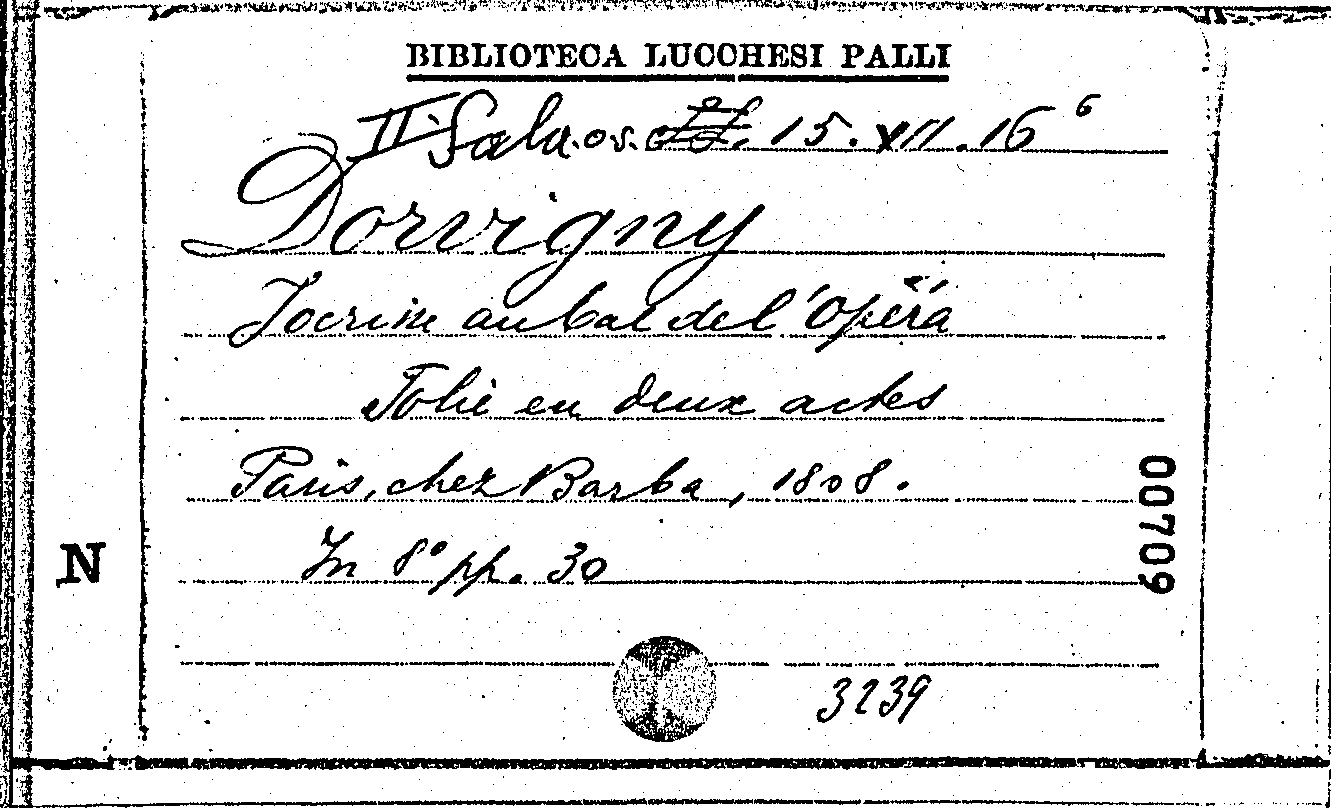 BIBLIOTECA LUCCHESI PALLI
II Sala. 15. XII. 16 6
Dorvigny
Jocrisse au bal de l'Opéra
Folie en deux actes
Paris, chez Barba, 1808.
In 8° pp. 30
N
00709
3239